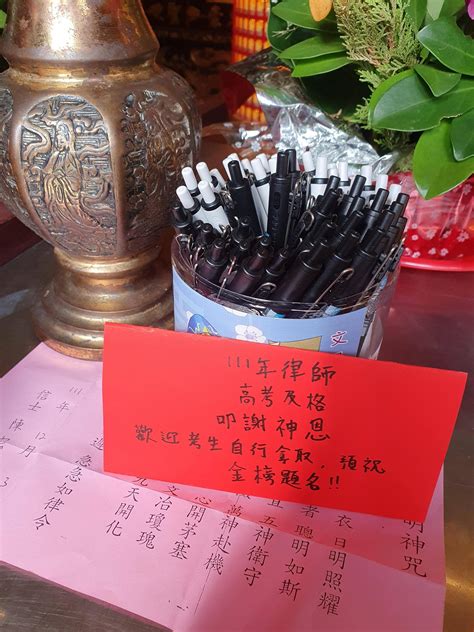 文
111年律師
高考及格
叩謝神恩
歡迎考生自行拿取,預祝
金榜題名!!
明神咒
衣日明照耀
者聰明如斯
五神衛守
萬神赴機
心開茅塞
文治瓊瑰
天開化
急急如律令
年 12月 3
信士 陳